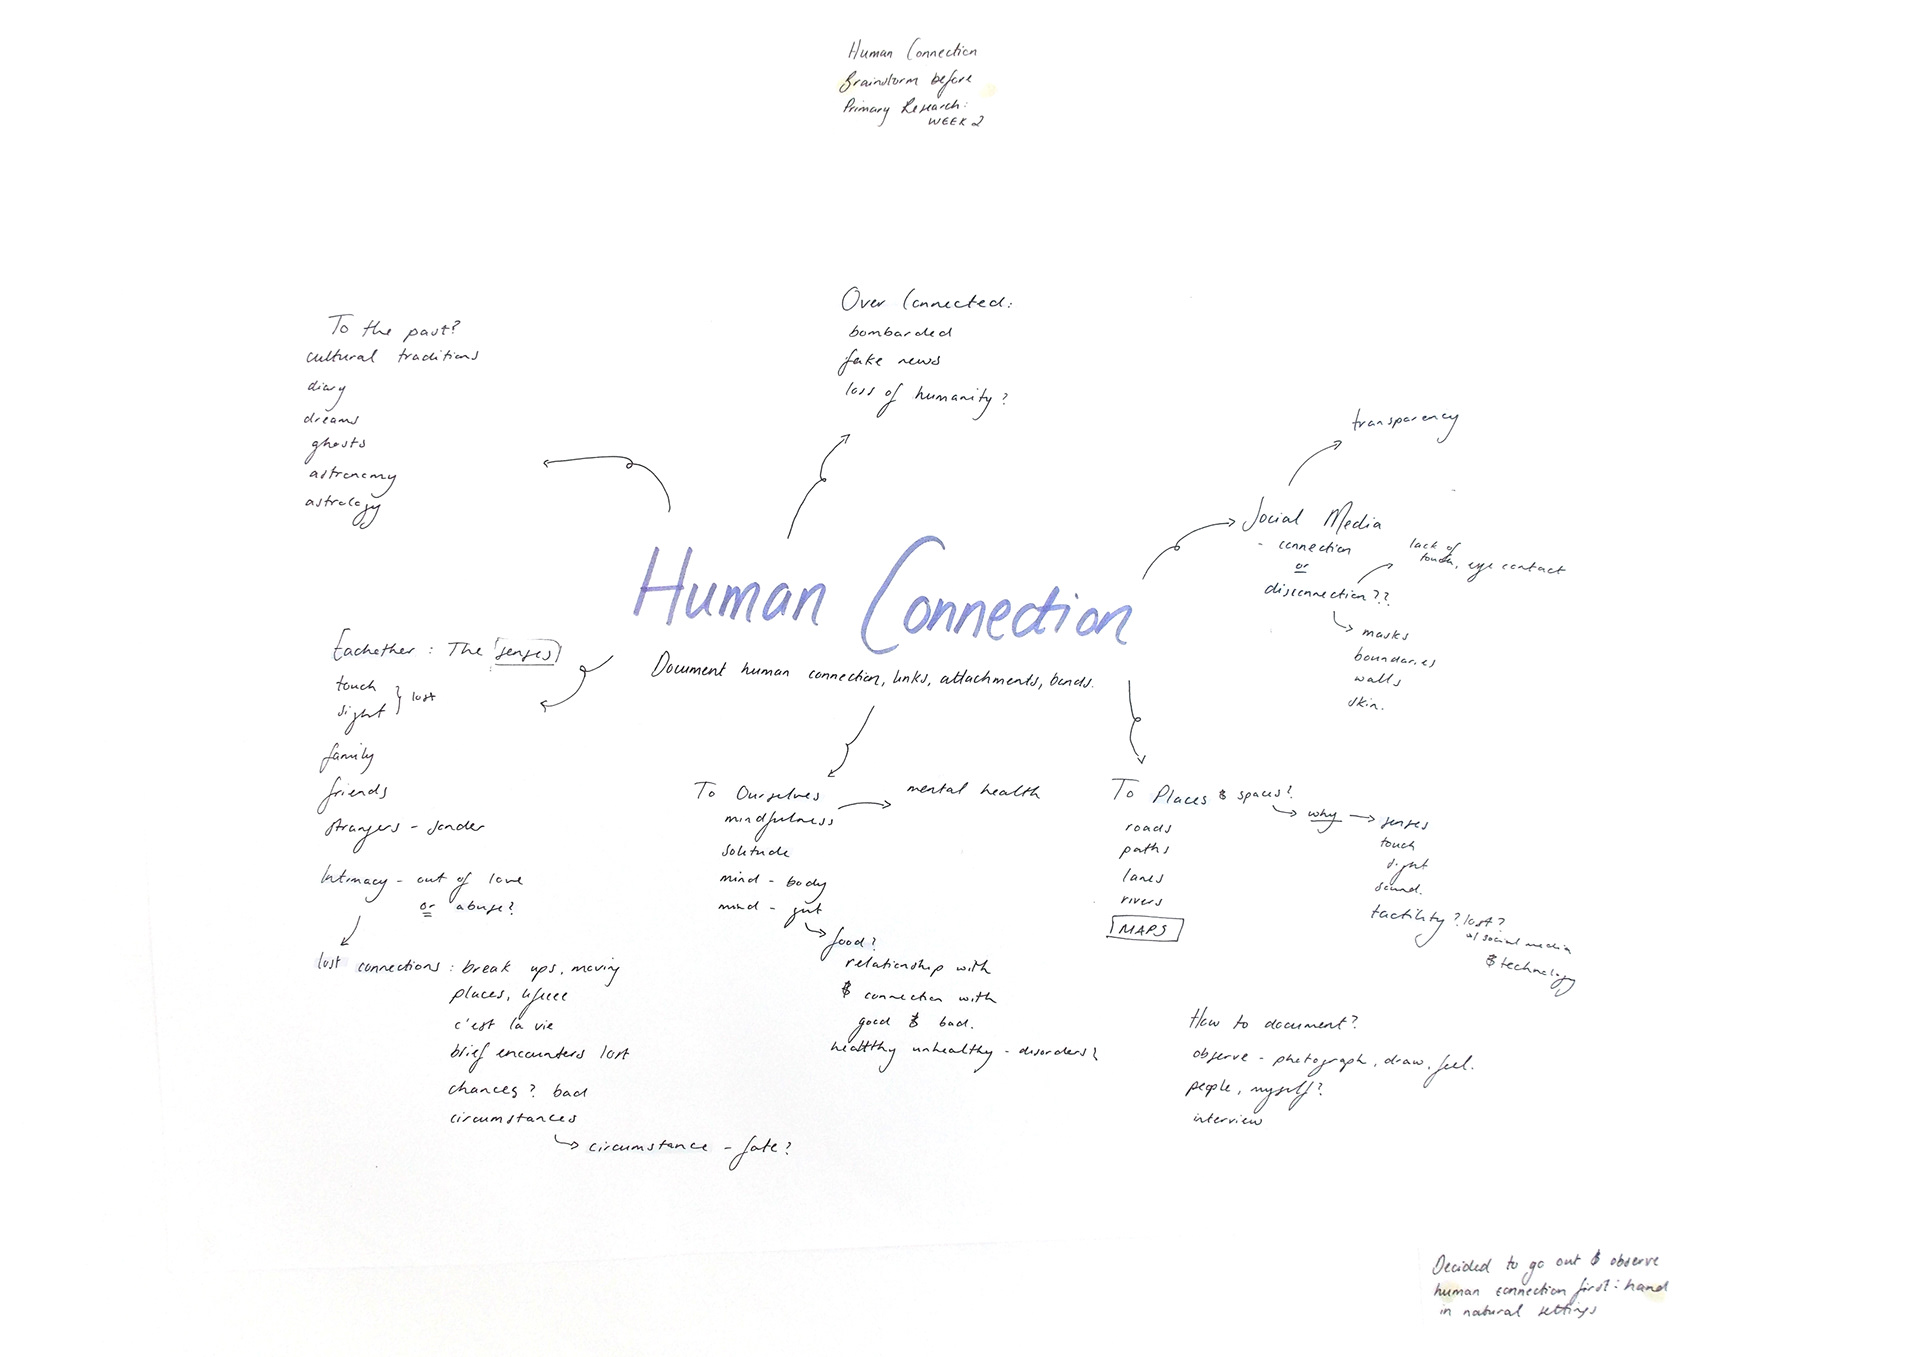 Human Connection
Brainstorm before
Primary Research:
WEEK 2
Over Connected:
bombarded
fake news
loss of humanity?
To the past?
cultural traditions
diary
dreams
ghosts
astronomy
astrology
transparency
Social Media
- connection
or
disconnection??
lack of
touch, eye contact
masks
boundaries
walls
skin.
Human Connection
Document human connection, links, attachments, bonds.
Eachother: The senses
touch
sight
lost
family
friends
strangers - gender
Intimacy - out of love
or abuse?
lost connections: break ups, moving
places,
c'est la vie
brief encounters lost
chances? bad
circumstances
circumstance - fate?
To Ourselves
mental health
mindfulness
solitude
mind - body
mind - gut
food?
relationship with
& connection with
good & bad.
healthy unhealthy - disorders?
To Places & spaces?
why
senses
touch
sight
sound.
tactility? lost?
w/ social media
& technology
roads
paths
lanes
rivers
MAPS
How to document?
observe - photograph, draw, feel.
people, myself?
interview
Decided to go out & observe
human connection first-hand
in natural settings